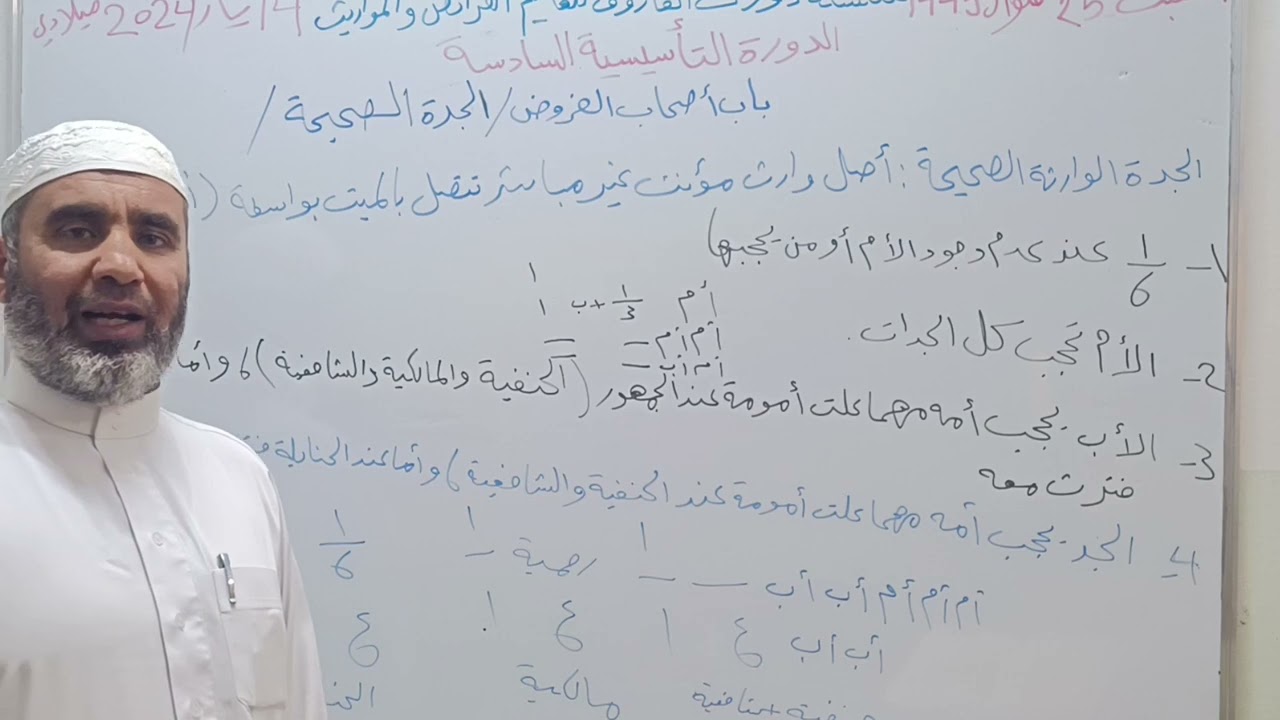 السبت 25 شوال 1445 سلسلة دورات الفاروق لتعليم الفرائض والمواريث 4 أيار 2024 ميلادي
الدورة التأسيسية السادسة
باب أصحاب الفروض / الجدة الصحيحة /
الجدة الوارثة الصحيحة : أصل وارث مؤنث غير مباشر تتصل بالميت بواسطة (
1- 1/6 عند عدم وجود الأم أو من يحجبها
أم 1/3 + ب 1 1
2- الأم تحجب كل الجدات.
أم أم —
أم أب —
3- الأب يحجب أمه مهما علت أمومة عند الجمهور (الحنفية والمالكية والشافعية)، وأما
فترث معه
4- الجد يحجب أمه مهما علت أمومة عند الحنفية والشافعية) وأما عند الحنابلة
أم أم أم أب أب — — 1 رحمية — 1 1/6
أب أب ع 1 ع 1 ع
حنفية + شافعية مالكية